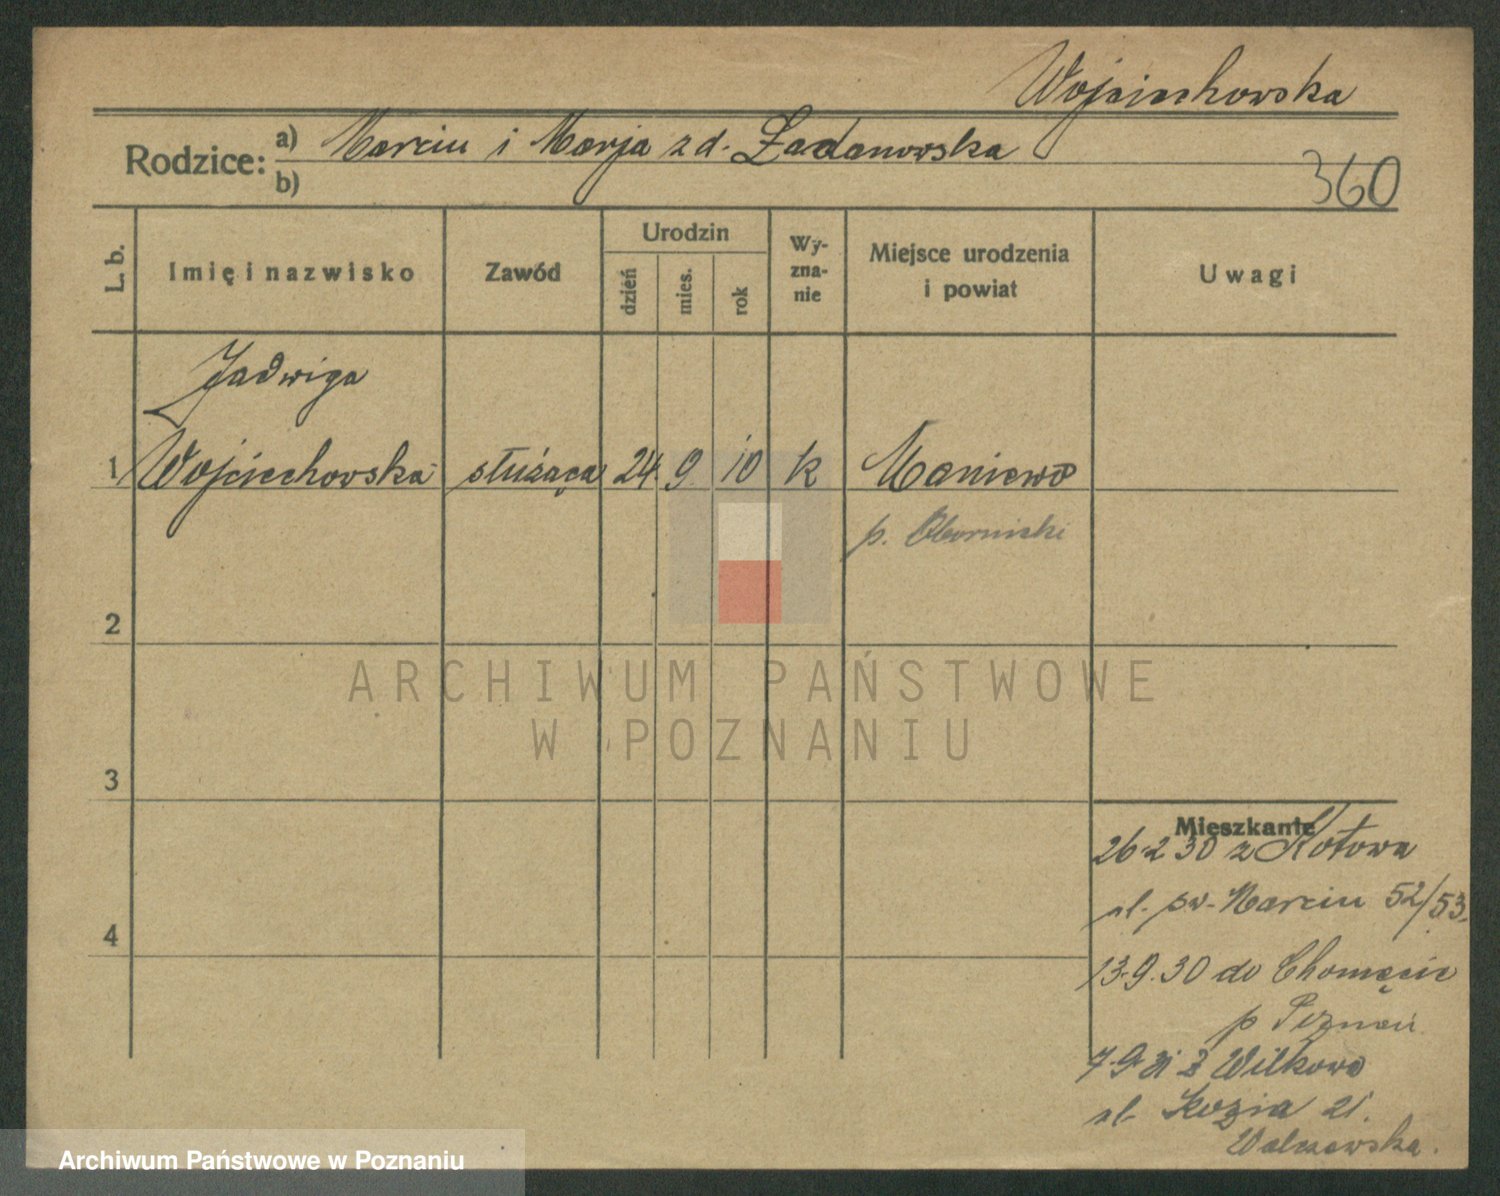 Wojciechowska
Rodzice: a) Marcin i Marja z d. Ladanowska
b)
360
L. b.
Imię i nazwisko
Zawód
Urodzin
dzień
mies.
rok
Wy-
zna-
nie
Miejsce urodzenia
i powiat
Uwagi
Jadwiga
1 Wojciechowska służąca 24. 9 10 k Maniewo
p. Obornicki
2
3
4
ARCHIWUM PAŃSTWOWE
W POZNANIU
Mieszkanie
26.2 30 z Kotowa
ul. św. Marcin 52/53.
13.9.30 do Chomęcic
p Poznań
7.9.31 z Wilkowo
ul. Kozia 21.
Archiwum Państwowe w Poznaniu